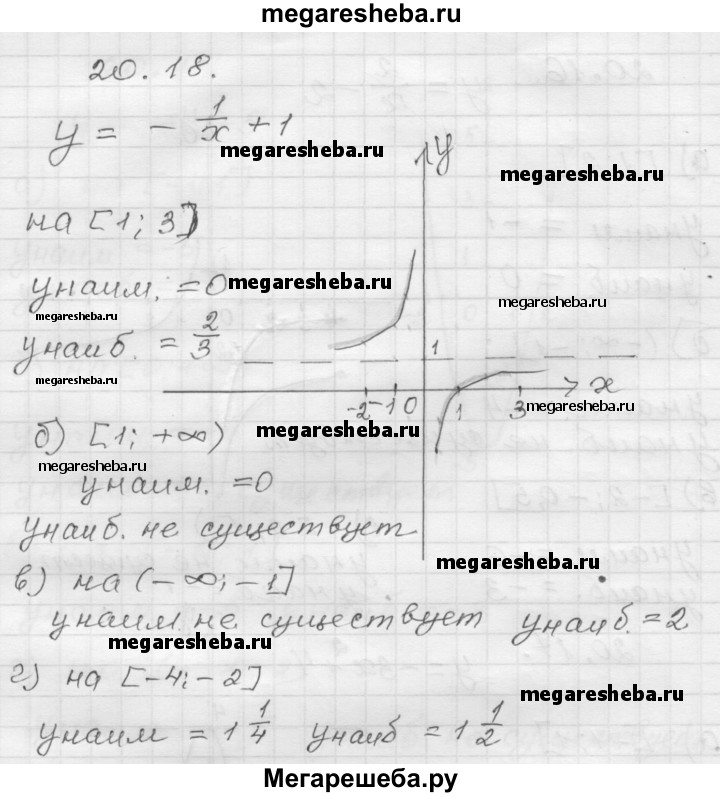 megaresheba.ru
20.18.
y = - 1/x + 1
megaresheba.ru
y
megaresheba.ru
на [1; 3]
yнаим. = 0
megaresheba.ru
megaresheba.ru
megaresheba.ru
yнаиб. = 2/3
1
megaresheba.ru
-2 -1 0 1 3 x
megaresheba.ru
б) [1; +∞)
megaresheba.ru
megaresheba.ru
yнаим. = 0
yнаиб. не существует
megaresheba.ru
в) на (-∞; -1]
yнаим. не существует yнаиб. = 2
megaresheba.ru
г) на [-4; -2]
megaresheba.ru
yнаим = 1 1/4 yнаиб = 1 1/2
Мегарешеба.ру